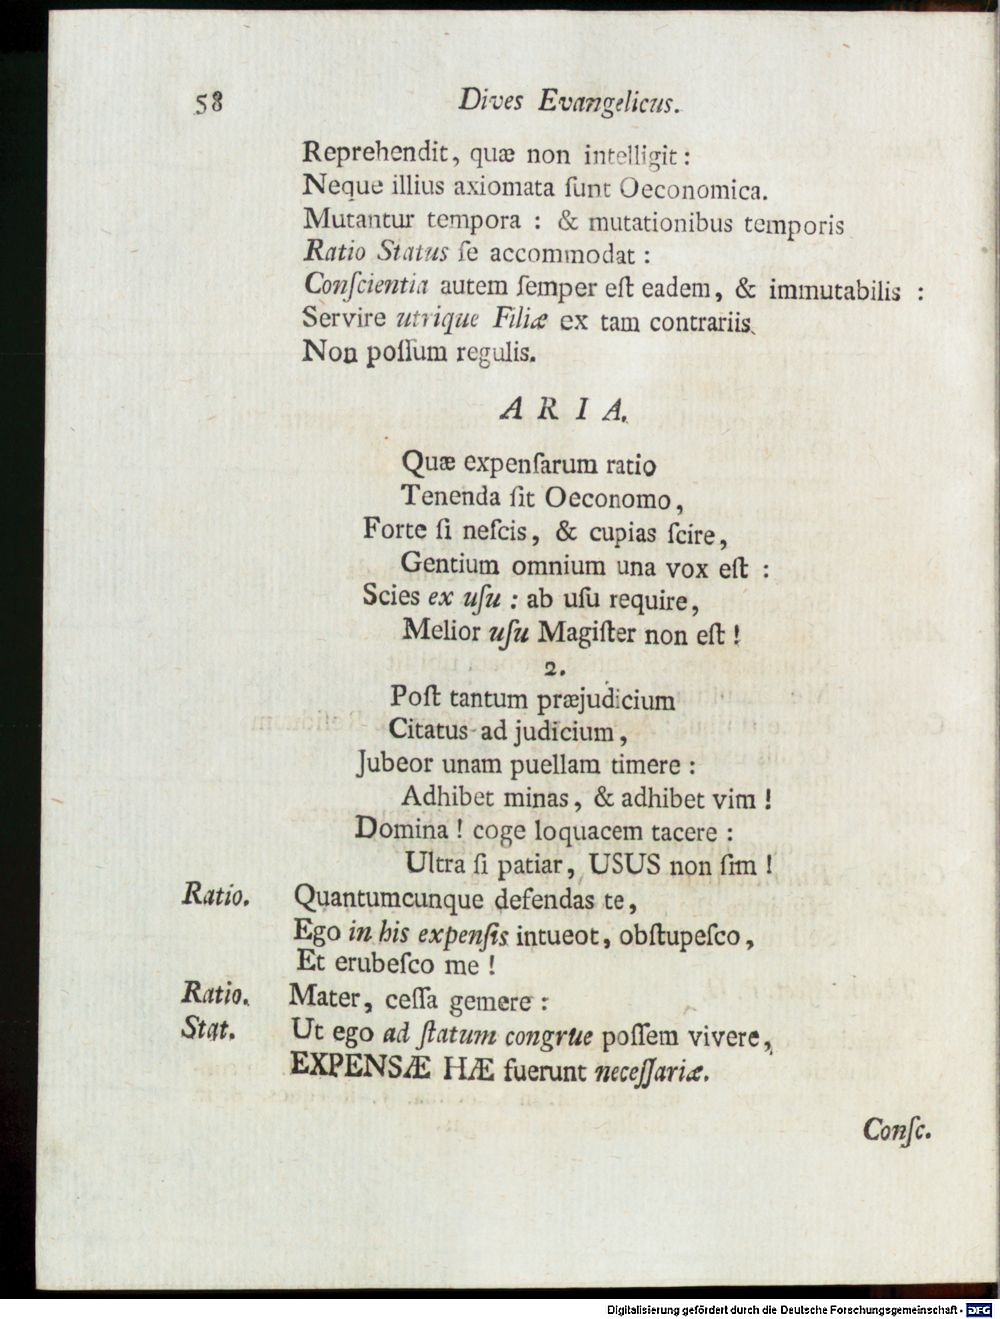 58 Dives Evangelicus.
Reprehendit, quæ non intelligit :
Neque illius axiomata ſunt Oeconomica.
Mutantur tempora : & mutationibus temporis
Ratio Status ſe accommodat :
Conſcientia autem ſemper eſt eadem, & immutabilis :
Servire utrique Filiæ ex tam contrariis
Non poſſum regulis.
ARIA.
Quæ expenſarum ratio
Tenenda ſit Oeconomo,
Forte ſi neſcis, & cupias ſcire,
Gentium omnium una vox eſt :
Scies ex uſu : ab uſu require,
Melior uſu Magiſter non eſt !
2.
Poſt tantum præjudicium
Citatus ad judicium,
Jubeor unam puellam timere :
Adhibet minas, & adhibet vim !
Domina ! coge loquacem tacere :
Ultra ſi patiar, USUS non ſim !
Ratio. Quantumcunque defendas te,
Ego in his expenſis intueot, obſtupeſco,
Et erubeſco me !
Ratio. Mater, ceſſa gemere :
Stat. Ut ego ad ſtatum congrue poſſem vivere,
EXPENSÆ HÆ fuerunt neceſſariæ.
Conſc.
Digitalisierung gefördert durch die Deutsche Forschungsgemeinschaft - DFG